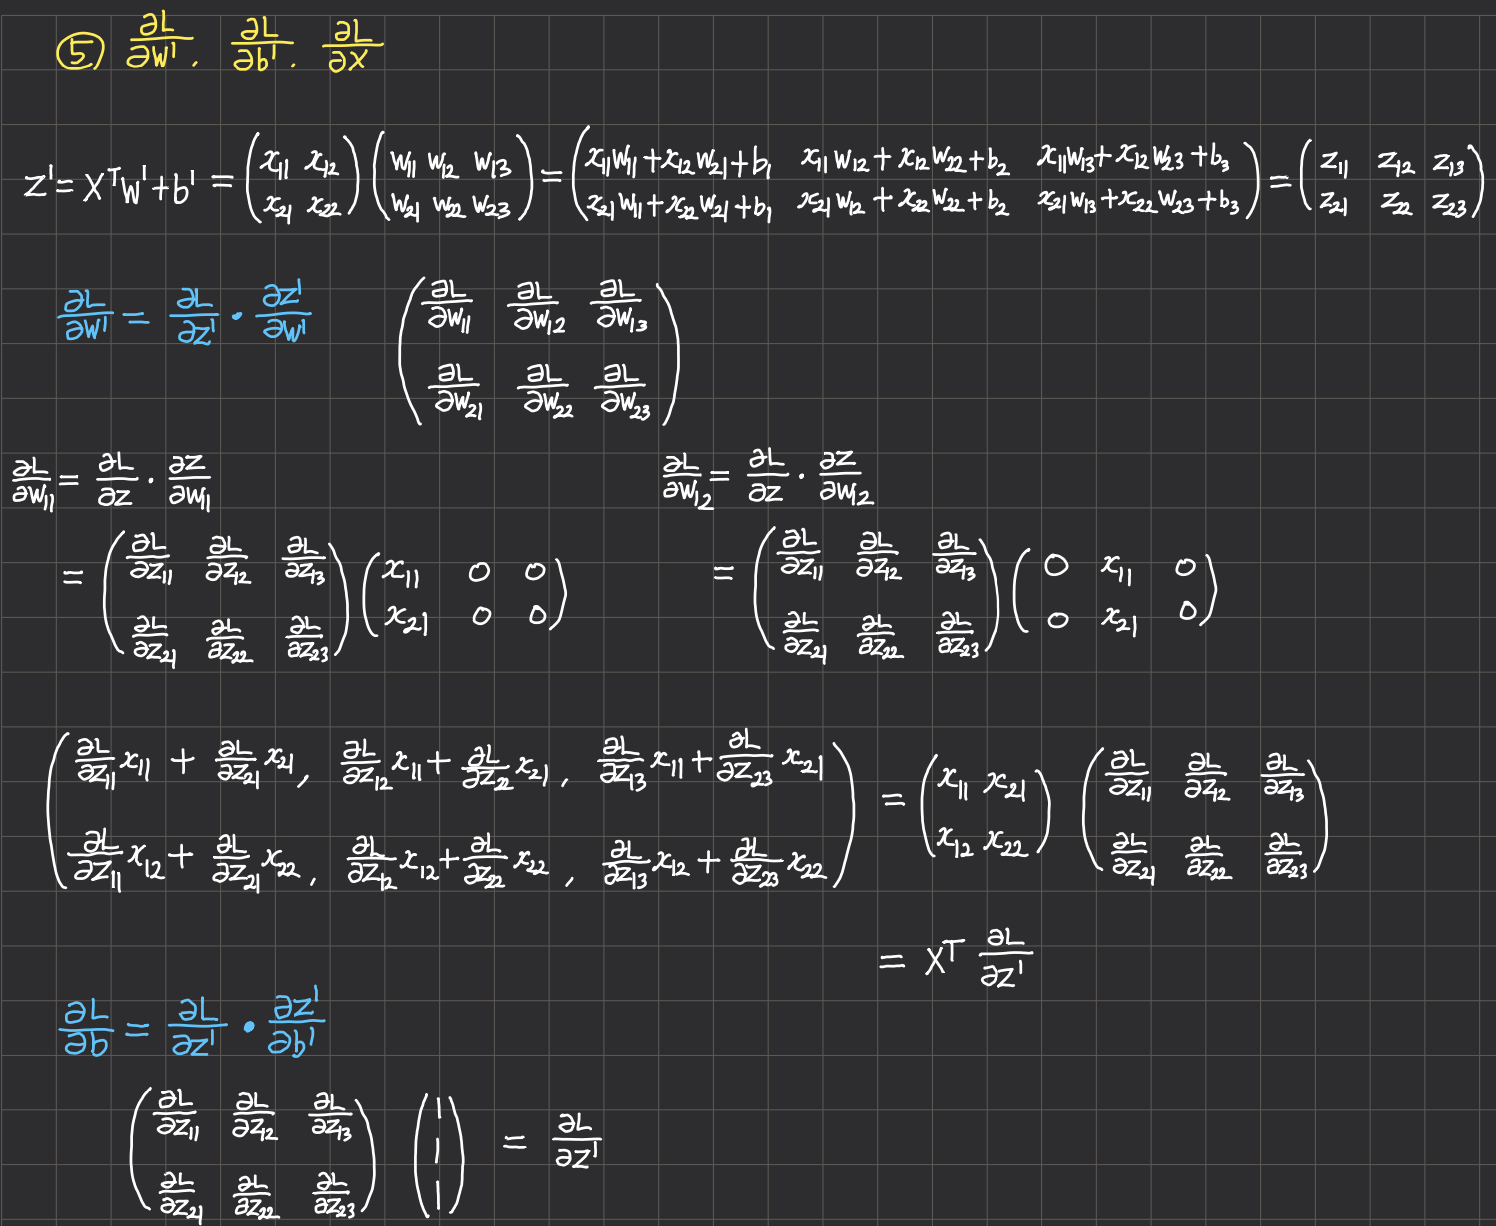 ⑤ ∂L/∂W¹ . ∂L/∂b¹ . ∂L/∂X
Z¹ = XᵀW¹ + b¹ = (x₁₁ x₁₂ ; x₂₁ x₂₂) (w₁₁ w₁₂ w₁₃ ; w₂₁ w₂₂ w₂₃) = (x₁₁w₁₁+x₁₂w₂₁+b₁ x₁₁w₁₂+x₁₂w₂₂+b₂ x₁₁w₁₃+x₁₂w₂₃+b₃ ; x₂₁w₁₁+x₂₂w₂₁+b₁ x₂₁w₁₂+x₂₂w₂₂+b₂ x₂₁w₁₃+x₂₂w₂₃+b₃) = (z₁₁ z₁₂ z₁₃ ; z₂₁ z₂₂ z₂₃)
∂L/∂W¹ = ∂L/∂Z¹ · ∂Z¹/∂W¹ (∂L/∂w₁₁ ∂L/∂w₁₂ ∂L/∂w₁₃ ; ∂L/∂w₂₁ ∂L/∂w₂₂ ∂L/∂w₂₃)
∂L/∂w₁₁ = ∂L/∂z · ∂z/∂w₁₁ ∂L/∂w₁₂ = ∂L/∂z · ∂z/∂w₁₂
= (∂L/∂z₁₁ ∂L/∂z₁₂ ∂L/∂z₁₃ ; ∂L/∂z₂₁ ∂L/∂z₂₂ ∂L/∂z₂₃) (x₁₁ 0 0 ; x₂₁ 0 0) = (∂L/∂z₁₁ ∂L/∂z₁₂ ∂L/∂z₁₃ ; ∂L/∂z₂₁ ∂L/∂z₂₂ ∂L/∂z₂₃) (0 x₁₁ 0 ; 0 x₂₁ 0)
(∂L/∂z₁₁ x₁₁ + ∂L/∂z₂₁ x₂₁, ∂L/∂z₁₂ x₁₁ + ∂L/∂z₂₂ x₂₁, ∂L/∂z₁₃ x₁₁ + ∂L/∂z₂₃ x₂₁ ; ∂L/∂z₁₁ x₁₂ + ∂L/∂z₂₁ x₂₂, ∂L/∂z₁₂ x₁₂ + ∂L/∂z₂₂ x₂₂, ∂L/∂z₁₃ x₁₂ + ∂L/∂z₂₃ x₂₂) = (x₁₁ x₂₁ ; x₁₂ x₂₂) (∂L/∂z₁₁ ∂L/∂z₁₂ ∂L/∂z₁₃ ; ∂L/∂z₂₁ ∂L/∂z₂₂ ∂L/∂z₂₃)
= Xᵀ ∂L/∂Z¹
∂L/∂b = ∂L/∂Z¹ · ∂Z¹/∂b¹
(∂L/∂z₁₁ ∂L/∂z₁₂ ∂L/∂z₁₃ ; ∂L/∂z₂₁ ∂L/∂z₂₂ ∂L/∂z₂₃) (1 ; 1 ; 1) = ∂L/∂Z¹